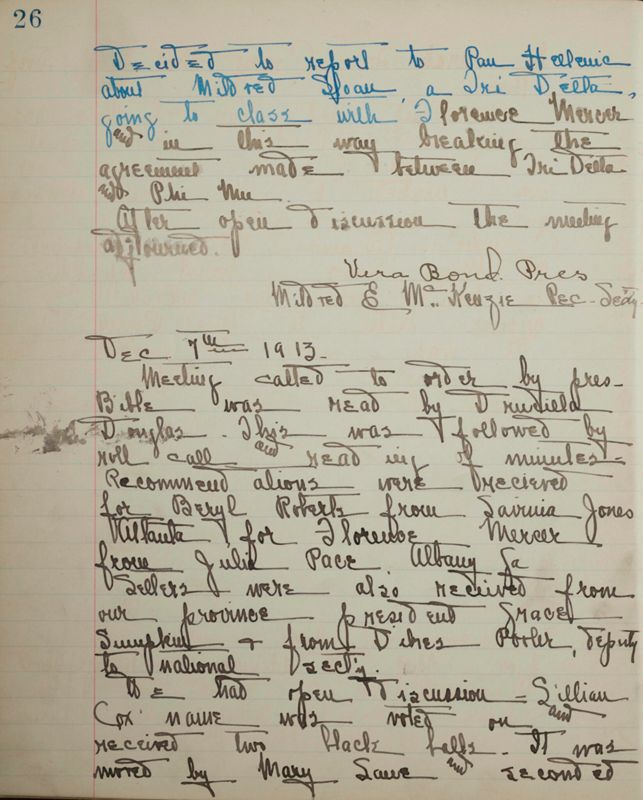 26
Decided to report to Pan Hellenic
about Mildred Sloan, a Tri Delta,
going to class with Florence Mercer
and in this way breaking the
agreement made between Tri Delta
and Phi Mu.
After open discussion the meeting
adjourned.
Vera Bond. Pres
Mildred E. McKenzie Rec. Sec'y.
Dec. 7th 1913.
Meeting called to order by pres-
Bible was read by Drusilla
Douglas. This was followed by
roll call and reading of minutes-
Recommendations were recieved
for Beryl Roberts from Jones
Atlanta for Florence Mercer
from Julia Pace Albany Ga
Letters were also received from
our province president Grace
Lumpkin + from Porter, deputy
to national sect'y.
We had open discussion - Lillian
Cox' name was voted on and
received two black balls. It was
moved by Mary Lane and seconded